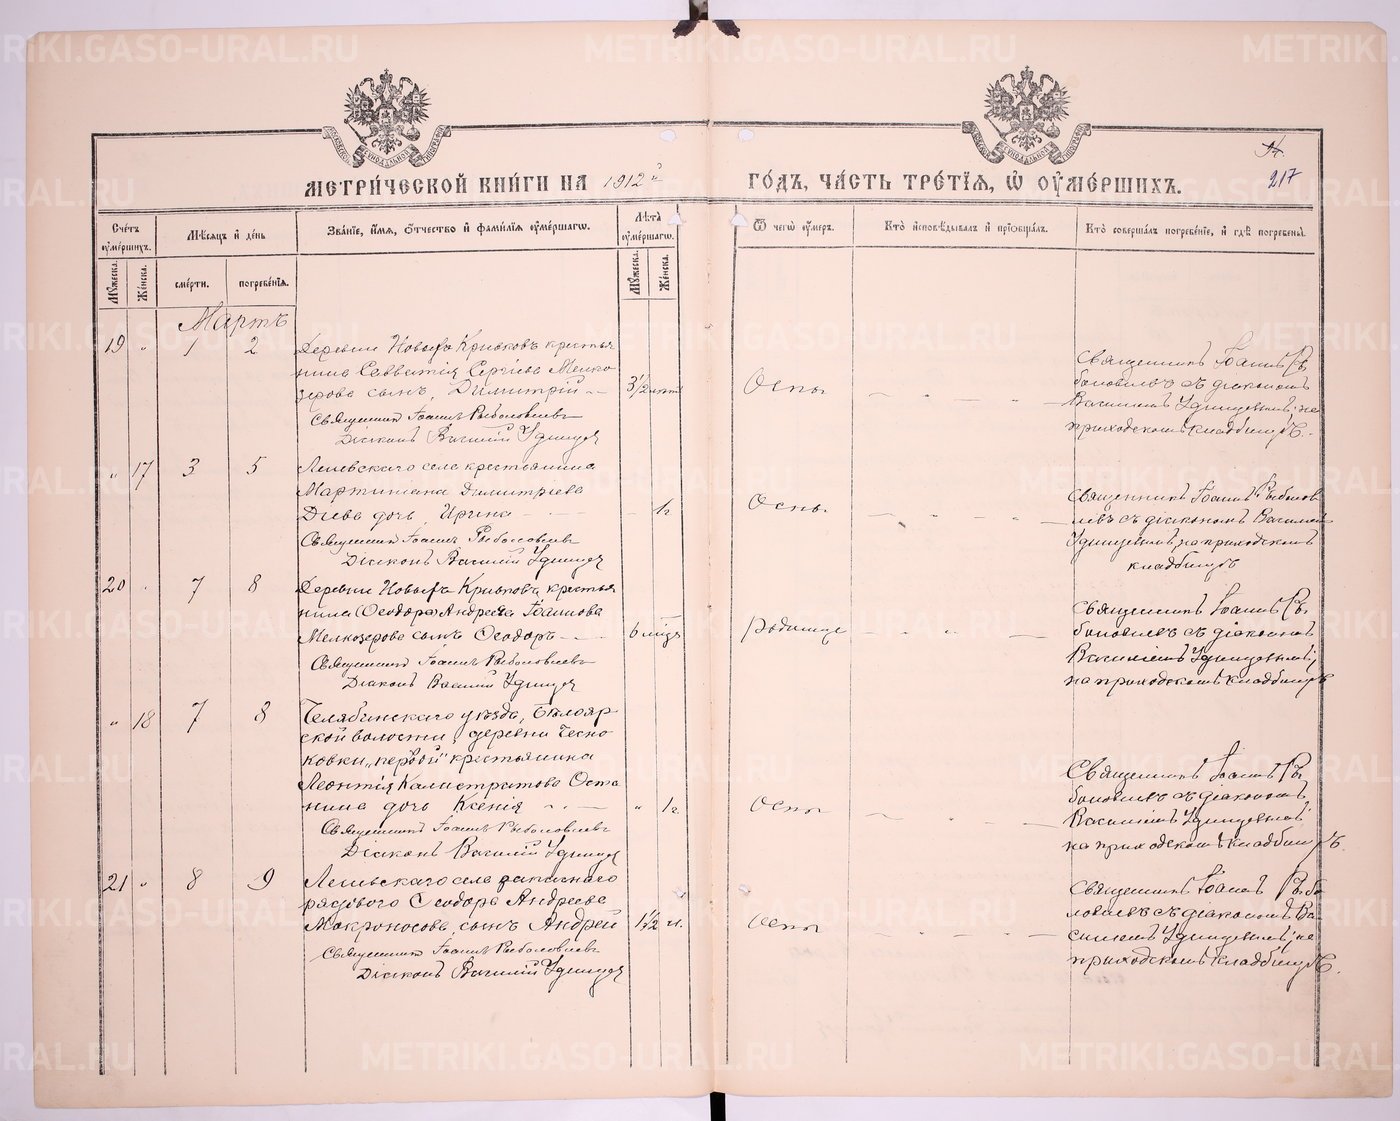 МЕТРИЧЕСКОЙ КНИГИ НА 1912й ГОДЪ, ЧАСТЬ ТРЕТІЯ, Ѡ ОУМЕРШИХЪ.
217
Счетъ оумершихъ.
Мѣсяцъ и день
Званіе, имя, отчество и фамилія оумершаго.
Лѣта оумершаго.
Ѿ чегѡ оумеръ.
Кто исповѣдывалъ и пріобщалъ.
Кто совершалъ погребеніе, и гдѣ погребены.
Мужеска.
Женска.
смерти.
погребенія.
Мужеска.
Женска.
Мартъ
19 " 1 2 Деревни Новыхъ Кривковъ крестья
нина Савватія Сергіева Мелко
зерова сынъ, Димитрій
3½ лѣт
Оспы
Священникъ Іоаннъ Рыболовлевъ
Діаконъ Василій Удинцев
Священникъ Іоаннъ Ры
боловлевъ съ діакономъ
Василіемъ Удинцевымъ, на
приходскомъ кладбищѣ.
" 17 3 5 села крестьянина
Мартиніана Димитріева
дочь, Ирина
1г
Оспы.
Священникъ Іоаннъ Рыболовлевъ
Діаконъ Василій Удинцев
Священникъ Іоаннъ Рыболов
левъ съ діакономъ Василіемъ
Удинцевымъ, на приходскомъ
кладбищѣ
20 " 7 8 Деревни Новыхъ Кривковъ крестья
нина (Ѳеодора) Андрея Іоаннова
Мелкозерова сынъ Ѳеодоръ
6 мѣсц
Родимца
Священникъ Іоаннъ Рыболовлевъ
Діаконъ Василій Удинцев
Священникъ Іоаннъ Ры
боловлевъ съ діакономъ
Василіемъ Удинцевымъ,
на приходскомъ кладбищѣ
" 18 7 8 Челябинскаго уѣзда, Бѣлояр
ской волости, деревни Чесно
ковки "первой" крестьянина
Леонтія Калистратова Оста
нина дочь Ксенія
" 1г
Оспы
Священникъ Іоаннъ Рыболовлевъ
Діаконъ Василій Удинцев
Священникъ Іоаннъ Ры
боловлевъ съ діакономъ
Василіемъ Удинцевымъ,
на приходскомъ кладбищѣ.
21 " 8 9 села запаснаго
рядового Ѳеодора Андреева
Мокроносова, сынъ Андрей
1½
Оспы
Священникъ Іоаннъ Рыболовлевъ
Діаконъ Василій Удинцев
Священникъ Іоаннъ Рыбо
ловлевъ съ діакономъ Ва
силіемъ Удинцевымъ, на
приходскомъ кладбищѣ.
METRIKI.GASO-URAL.RU